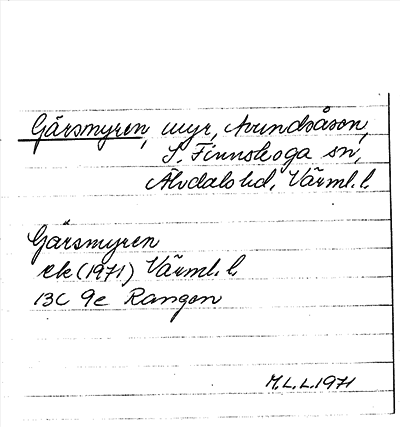 Gärsmyren, myr, Avundsåson,
S. Finnskoga sn,
Älvdals hd, Värml. l.
Gärsmyren
ek (1971) Värml. l.
13C 9e Rangen
M.L.L. 1971